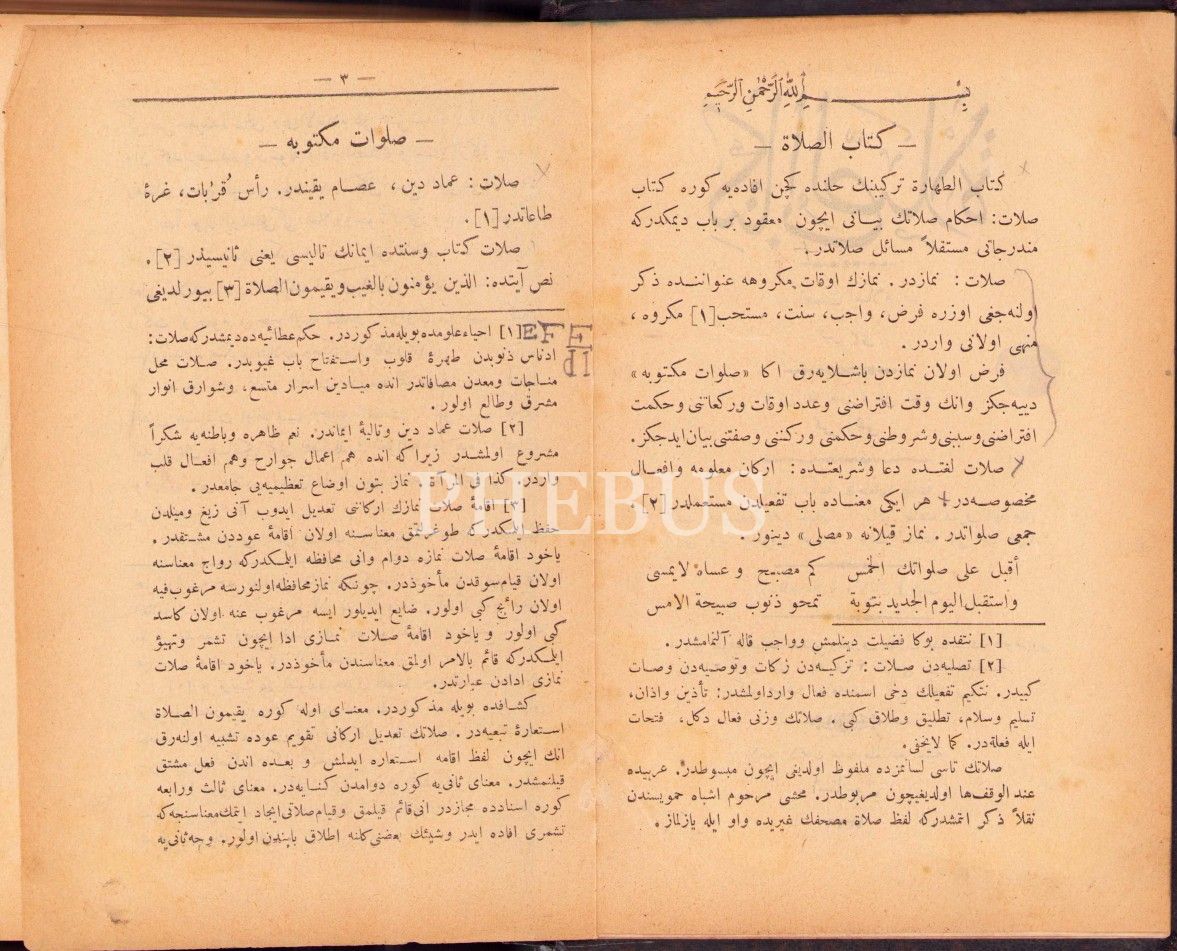 بسم الله الرحمن الرحيم
— كتاب الصلاة —
كتاب الطهارة تركيبنك حلنده كچن افاده‌يه كوره كتاب
صلات: احكام صلاتك بيانی ايچون معقود بر باب ديمكدركه
مندرجاتی مستقلاً مسائل صلاتدر.
صلات: نمازدر. نمازك اوقات مكروهه عنواننده ذكر
اولنه‌جغی اوزره فرض، واجب، سنت، مستحب [١] مكروه،
منهی اولانی واردر.
فرض اولان نمازدن باشلايه‌رق اكا «صلوات مكتوبه»
دييه‌جكز وانك وقت افتراضنی وعدد اوقات وركعاتنی وحكمت
افتراضنی وسببنی وشروطنی وحكمنی وركننی وصفتنی بيان ايدجكز.
صلات لغتده دعا وشريعتده: اركان معلومه وافعال
مخصوصه‌در. هر ايكی معناده باب تفعيلدن مستعملدر [٢]
جمعی صلواتدر. نماز قيلانه «مصلی» دينور.
أقبل على صلواتك الخمس   كم مصبح وعساه لايمسی
واستقبل اليوم الجديد بتوبة   تمحو ذنوب صبيحة الامس
[١] نتفده بوكا فضيلت دينلمش وواجب قاله آلنمامشدر.
[٢] تصليه‌دن صلات: تزكيه‌دن زكات وتوصيه‌دن وصات
كبيدر. نتكيم تفعيلك دخی اسمنده فعال وارد اولمشدر: تأذين واذان،
تسليم وسلام، تطليق وطلاق كبی. صلاتك وزنی فعال دكل، فتحات
ايله فعله‌در. كما لايخفی.
صلاتك تاسی لسانمزده ملفوظ اولديغی ايچون مبسوطدر. عربيده
عند الوقف ها اولديغيچون مربوطدر. محشی مرحوم اشباه حمويسندن
نقلاً ذكر اتمشدركه لفظ صلاة مصحفك غيريده واو ايله يازلماز.
— ٣ —
— صلوات مكتوبه —
صلات: عماد دين، عصام يقيندر. رأس قربات، غرۀ
طاعاتدر [١].
صلات كتاب وسنتده ايمانك تاليسی يعنی ثانيسيدر [٢].
نص آيتده: الذين يؤمنون بالغيب ويقيمون الصلاة [٣] بيورلديغی
[١] احياء علومده بويله مذكوردر. حكم عطائيه‌ده ديمشدركه صلات:
ادناس ذنوبدن طهرۀ قلوب واستفتاح باب غيوبدر. صلات محل
مناجات ومعدن مصافاتدر انده ميادين اسرار متسع، وشوارق انوار
مشرق وطالع اولور.
[٢] صلات عماد دين وتاليۀ ايماندر. نعم ظاهره وباطنه‌يه شكراً
مشروع اولمشدر زيرا كه انده هم اعمال جوارح وهم افعال قلب
واردر. كذا فی المرآة. نماز بتون اوضاع تعظيميه‌يی جامعدر.
[٣] اقامۀ صلات نمازك اركاننی تعديل ايدوب آنی زيغ وميلدن
حفظ ايلمكدركه طوغرلتمق معناسنه اولان اقامۀ عوددن مشتقدر.
ياخود اقامۀ صلات نمازه دوام وانی محافظه ايلمكدركه رواج معناسنه
اولان قيام سوقدن مأخوذدر. چونكه نماز محافظه اولنورسه مرغوب فيه
اولان رائج كبی اولور. ضايع ايديلور ايسه مرغوب عنه اولان كاسد
كبی اولور وياخود اقامۀ صلات نمازی ادا ايچون تشمر وتهيؤ
ايلمكدركه قائم بالامر اولمق معناسندن مأخوذدر. ياخود اقامۀ صلات
نمازی ادادن عبارتدر.
كشافده بويله مذكوردر. معنای اوله كوره يقيمون الصلاة
استعارۀ تبعيه‌در. صلاتك تعديل اركانی تقويم عوده تشبيه اولنه‌رق
انك ايچون لفظ اقامه استعاره ايدلمش وبعده اندن فعل مشتق
قيلنمشدر. معنای ثانی‌يه كوره دوامدن كنايه‌در. معنای ثالث ورابعه
كوره اسنادده مجازدر انی قائم قيلمق وقيام صلاتی ايجاد اتمك معناسنجه كه
تشمری افاده ايدر وشيئك بعضنی كلنه اطلاق بابندن اولور. وجه ثانی‌يه
PHEBUS